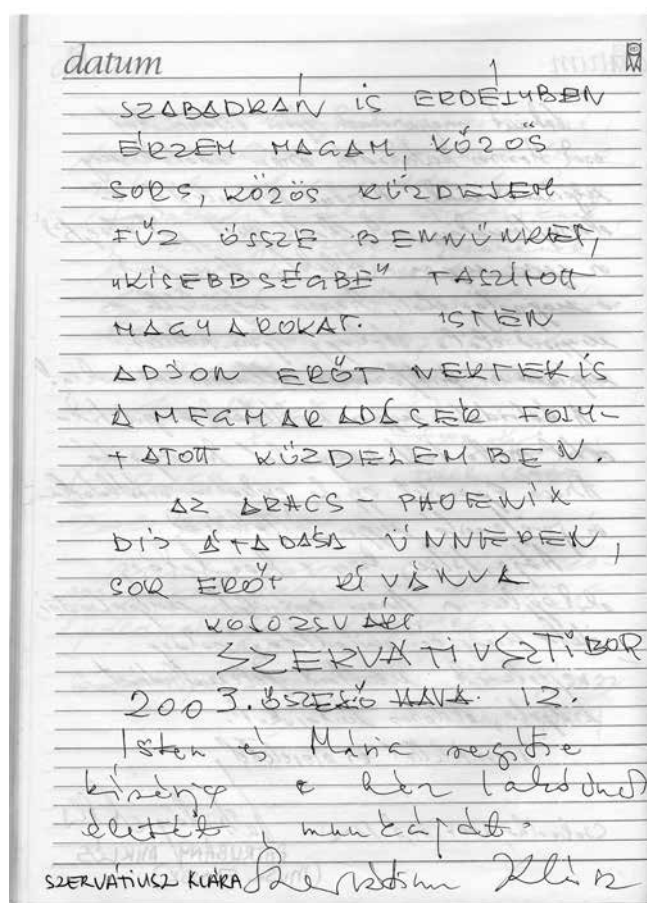 datum
SZABADKÁN IS ERDÉLYBEN
ÉRZEM MAGAM, KÖZÖS
SORS, KÖZÖS KÜZDELEM
FŰZ ÖSSZE BENNÜNKET,
„KISEBBSÉGBE" TASZÍTOTT
MAGYAROKAT. ISTEN
ADJON ERŐT NEKTEK IS
A MEGMARADÁSÉR FOLY-
TATOTT KÜZDELEMBEN.
AZ ARACS – PHOENIX
DÍJ ÁTADÁSA ÜNNEPÉN,
SOK ERŐT KÍVÁNVA
KOLOZSVÁRI
SZERVÁTIUSZ TIBOR
2003. ŐSZELŐ HAVA. 12.
Isten és Mária segítse
kísérje e ház lakóinak
életét, munkáját.
SZERVÁTIUSZ KLÁRA Szervátiusz Klára